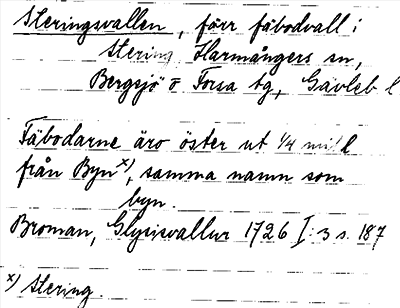 Steringsvallen, förr fäbodvall i
Stering Harmångers sn,
Bergsjö o Forsa tg, Gävleb l
Fäbodarne äro öster ut 1/4 mil
från Byn x), samma namn som
byn.
Broman, Glysisvallur 1726 I: 3 s. 187
x) Stering.